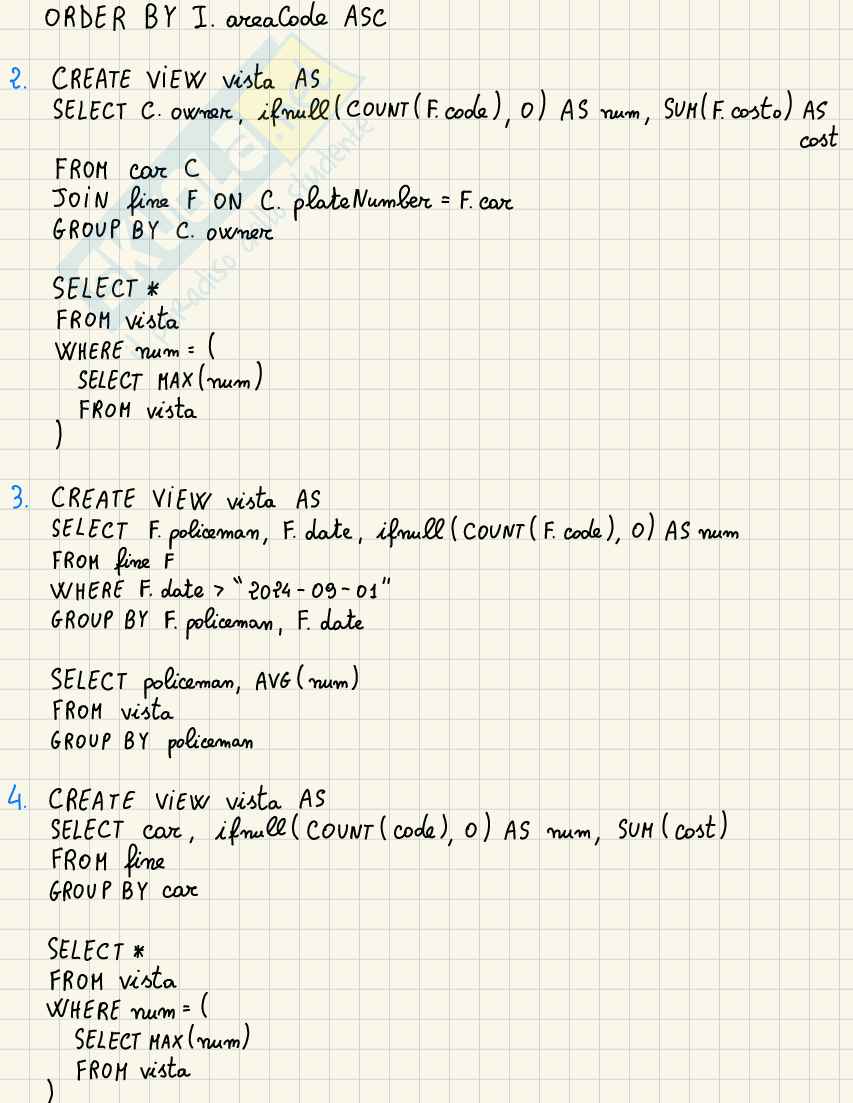 ORDER BY I. areaCode ASC
2. CREATE VIEW vista AS
SELECT C. owner, ifnull(COUNT(F. code), 0) AS num, SUM(F. costo) AS
cost
FROM car C
JOIN fine F ON C. plateNumber = F. car
GROUP BY C. owner
SELECT *
FROM vista
WHERE num = (
SELECT MAX(num)
FROM vista
)
3. CREATE VIEW vista AS
SELECT F. policeman, F. date, ifnull(COUNT(F. code), 0) AS num
FROM fine F
WHERE F. date > "2024-09-01"
GROUP BY F. policeman, F. date
SELECT policeman, AVG(num)
FROM vista
GROUP BY policeman
4. CREATE VIEW vista AS
SELECT car, ifnull(COUNT(code), 0) AS num, SUM(cost)
FROM fine
GROUP BY car
SELECT *
FROM vista
WHERE num = (
SELECT MAX(num)
FROM vista
)
skuola.net
il paradiso dello studente